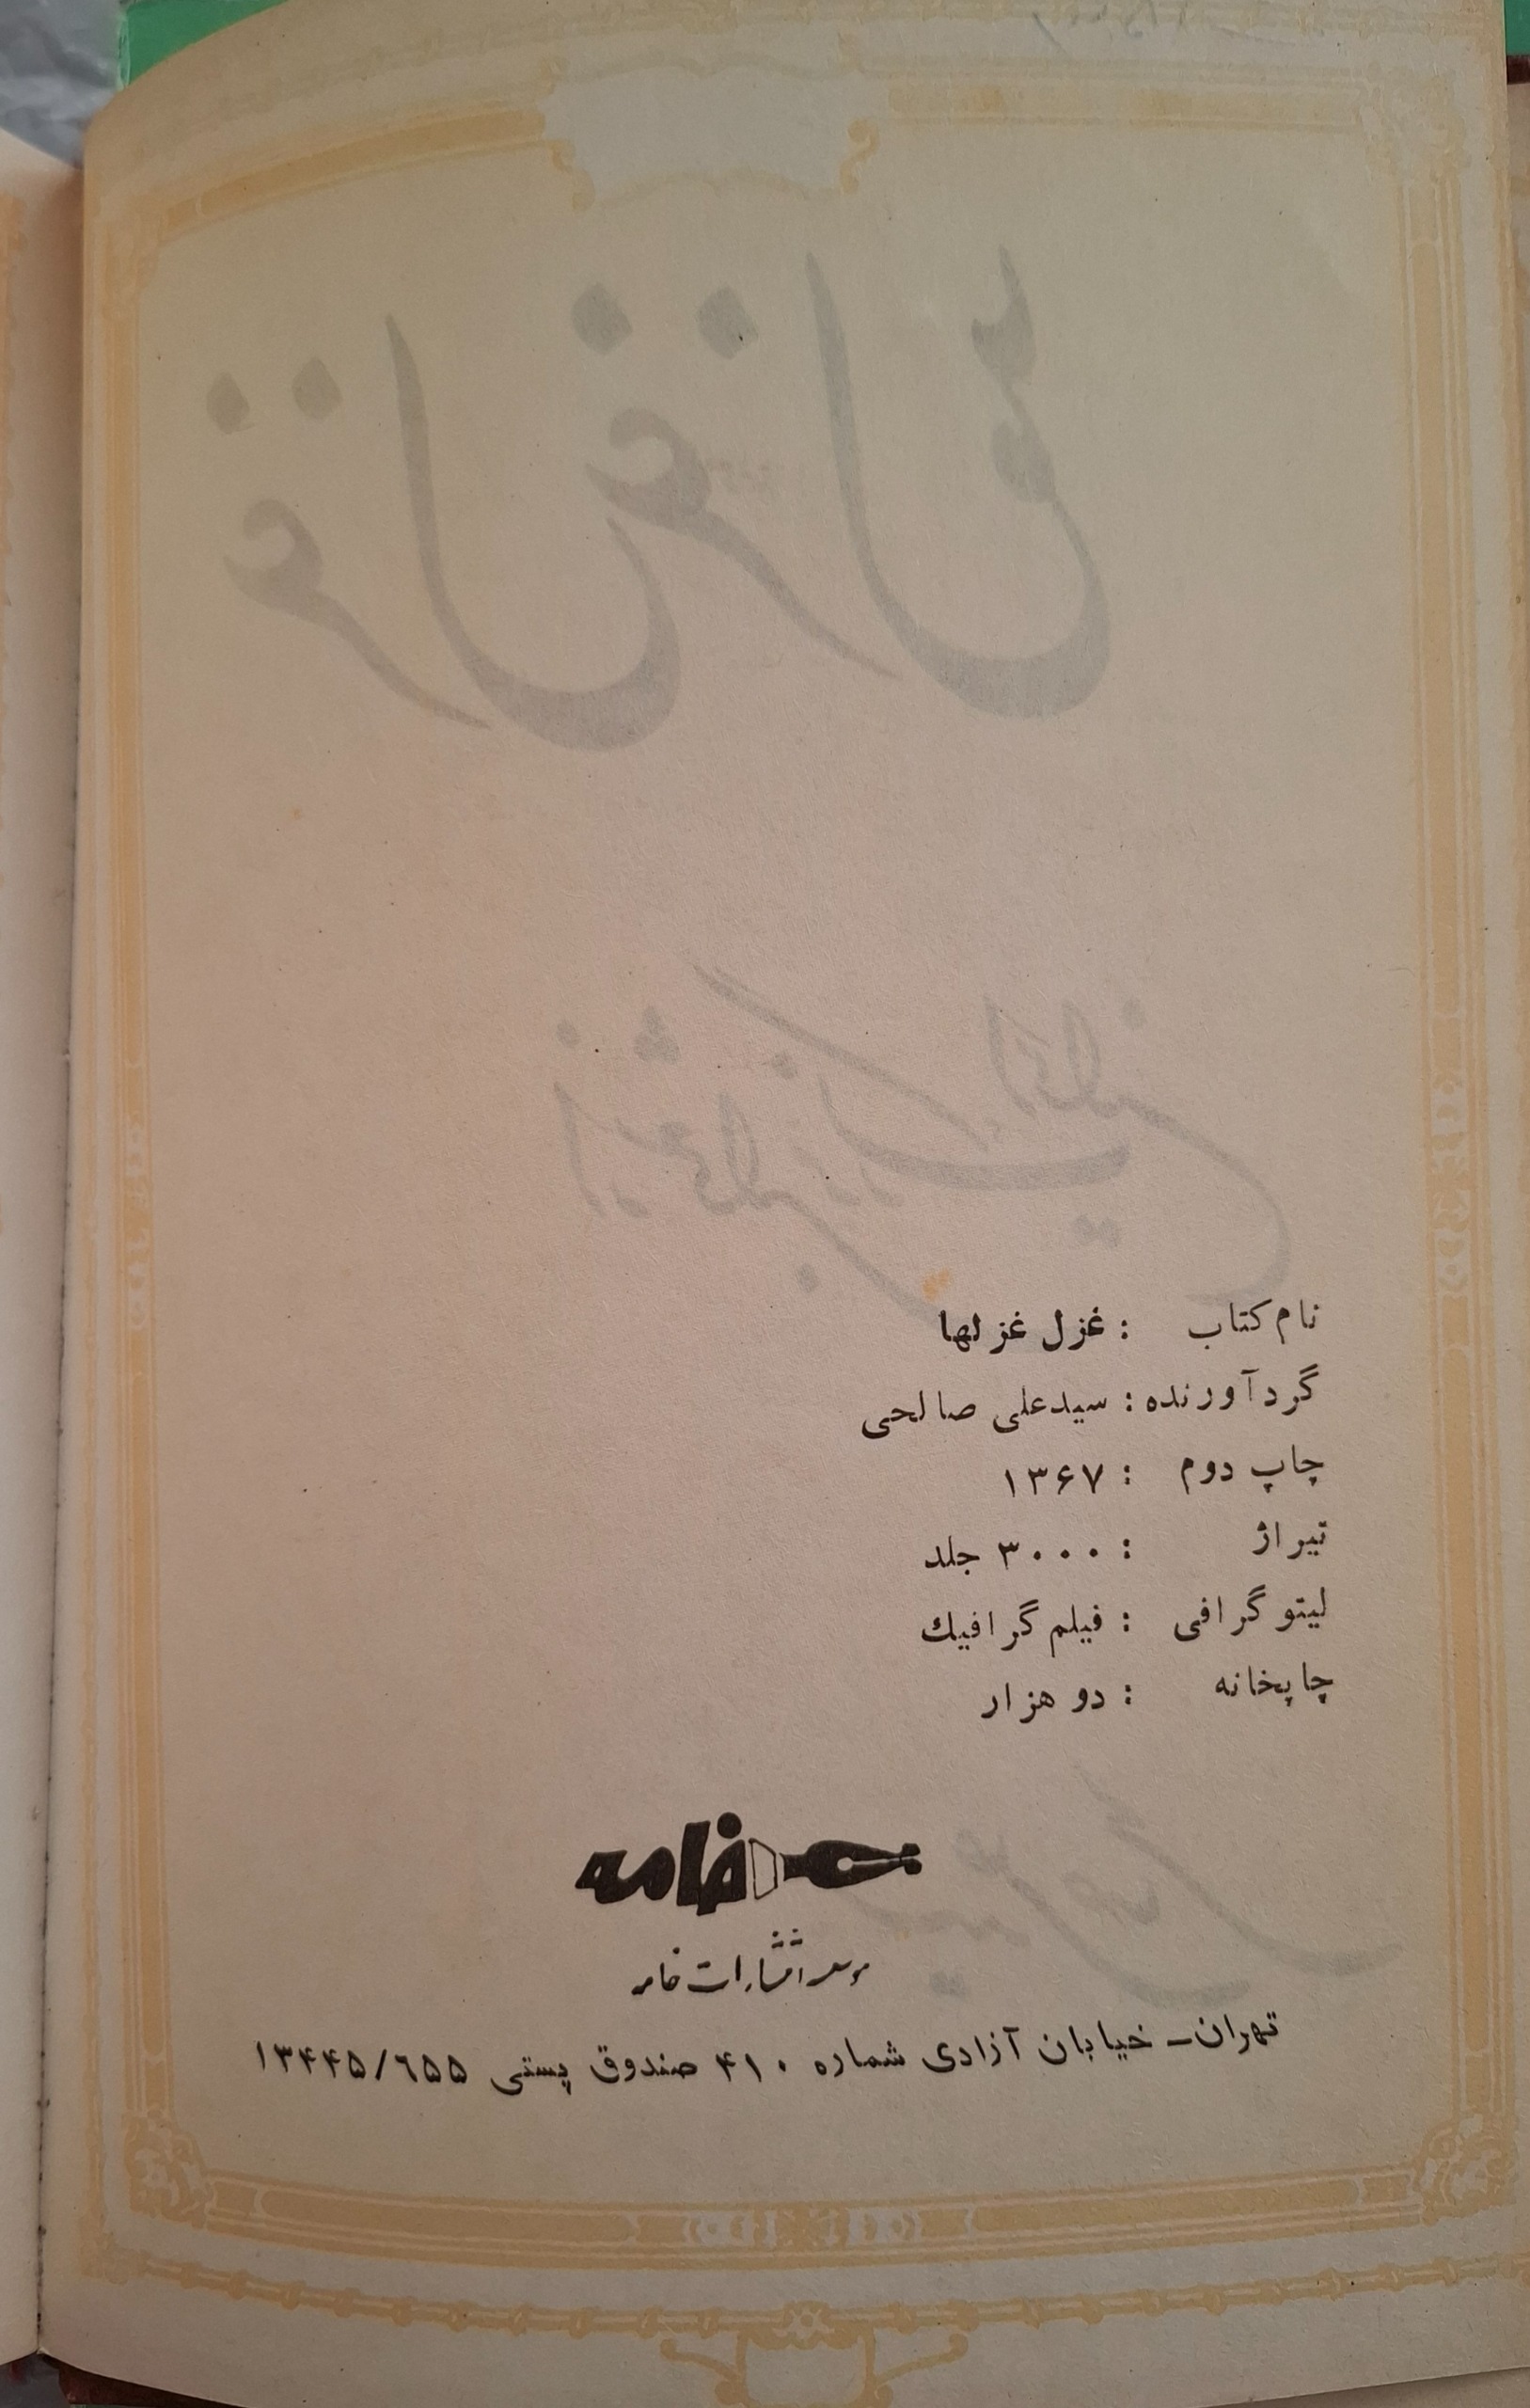 نام کتاب : غزل غزلها
گردآورنده : سیدعلی صالحی
چاپ دوم : ۱۳۶۷
تیراژ : ۳۰۰۰ جلد
لیتوگرافی : فیلم گرافیك
چاپخانه : دو هزار
خامه
موسسه انتشارات خامه
تهران- خیابان آزادی شماره ۴۱۰ صندوق پستی ۱۳۴۴۵/۶۵۵